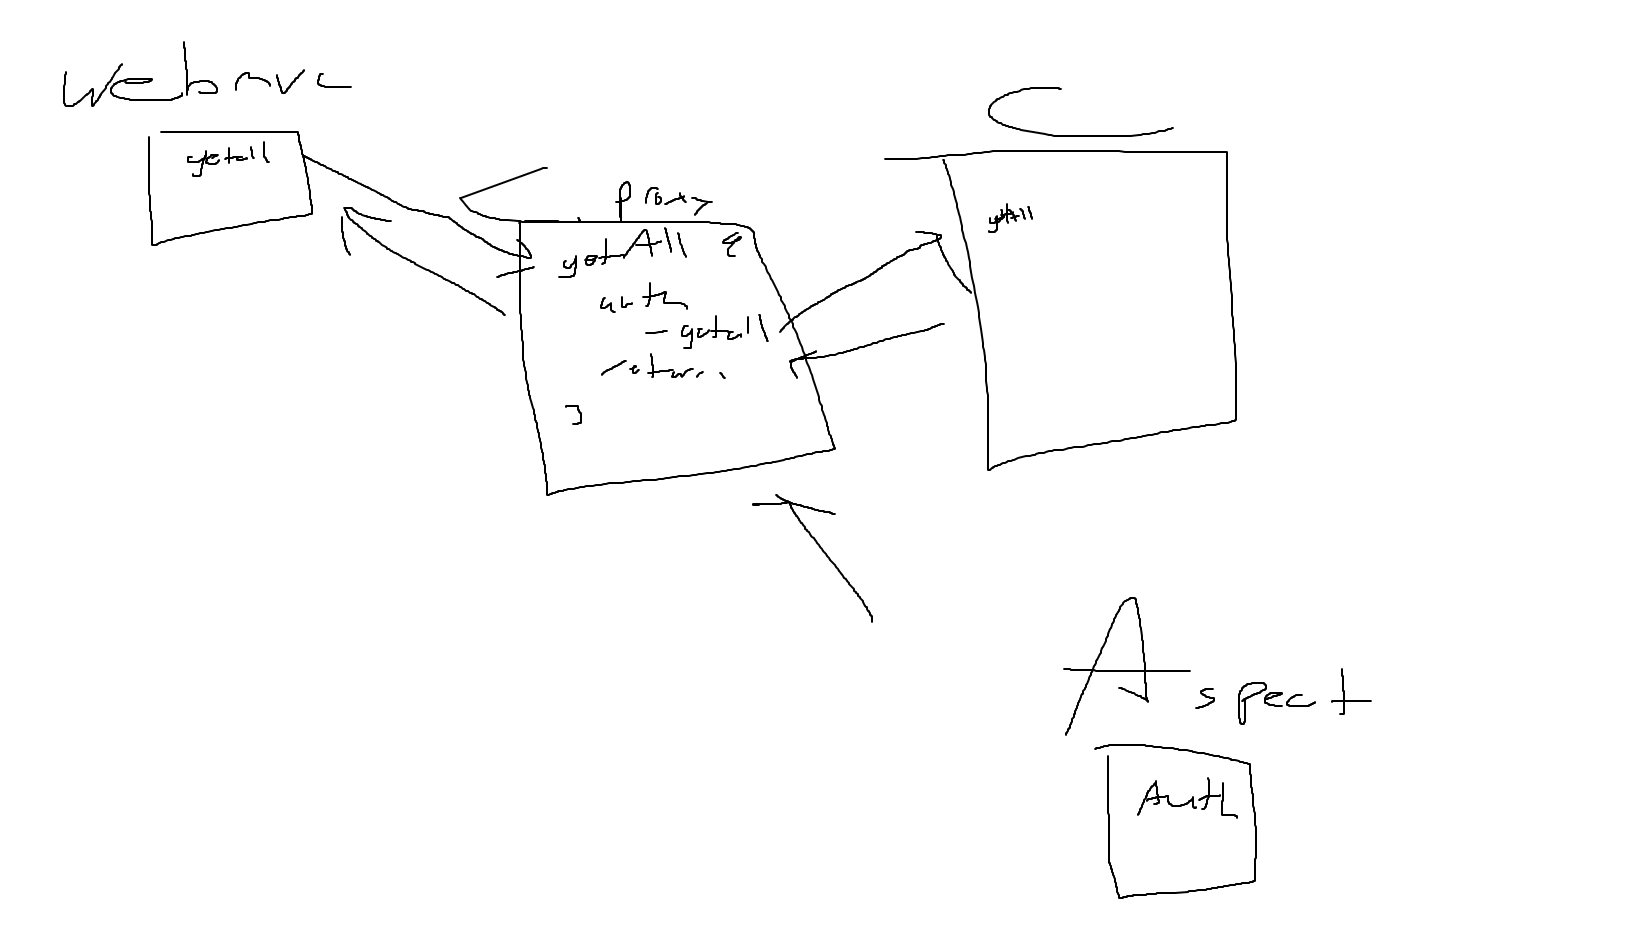 webmvc
getall
C
proxy
getAll {
auth
- getall
return
}
C
getAll
Aspect
Auth